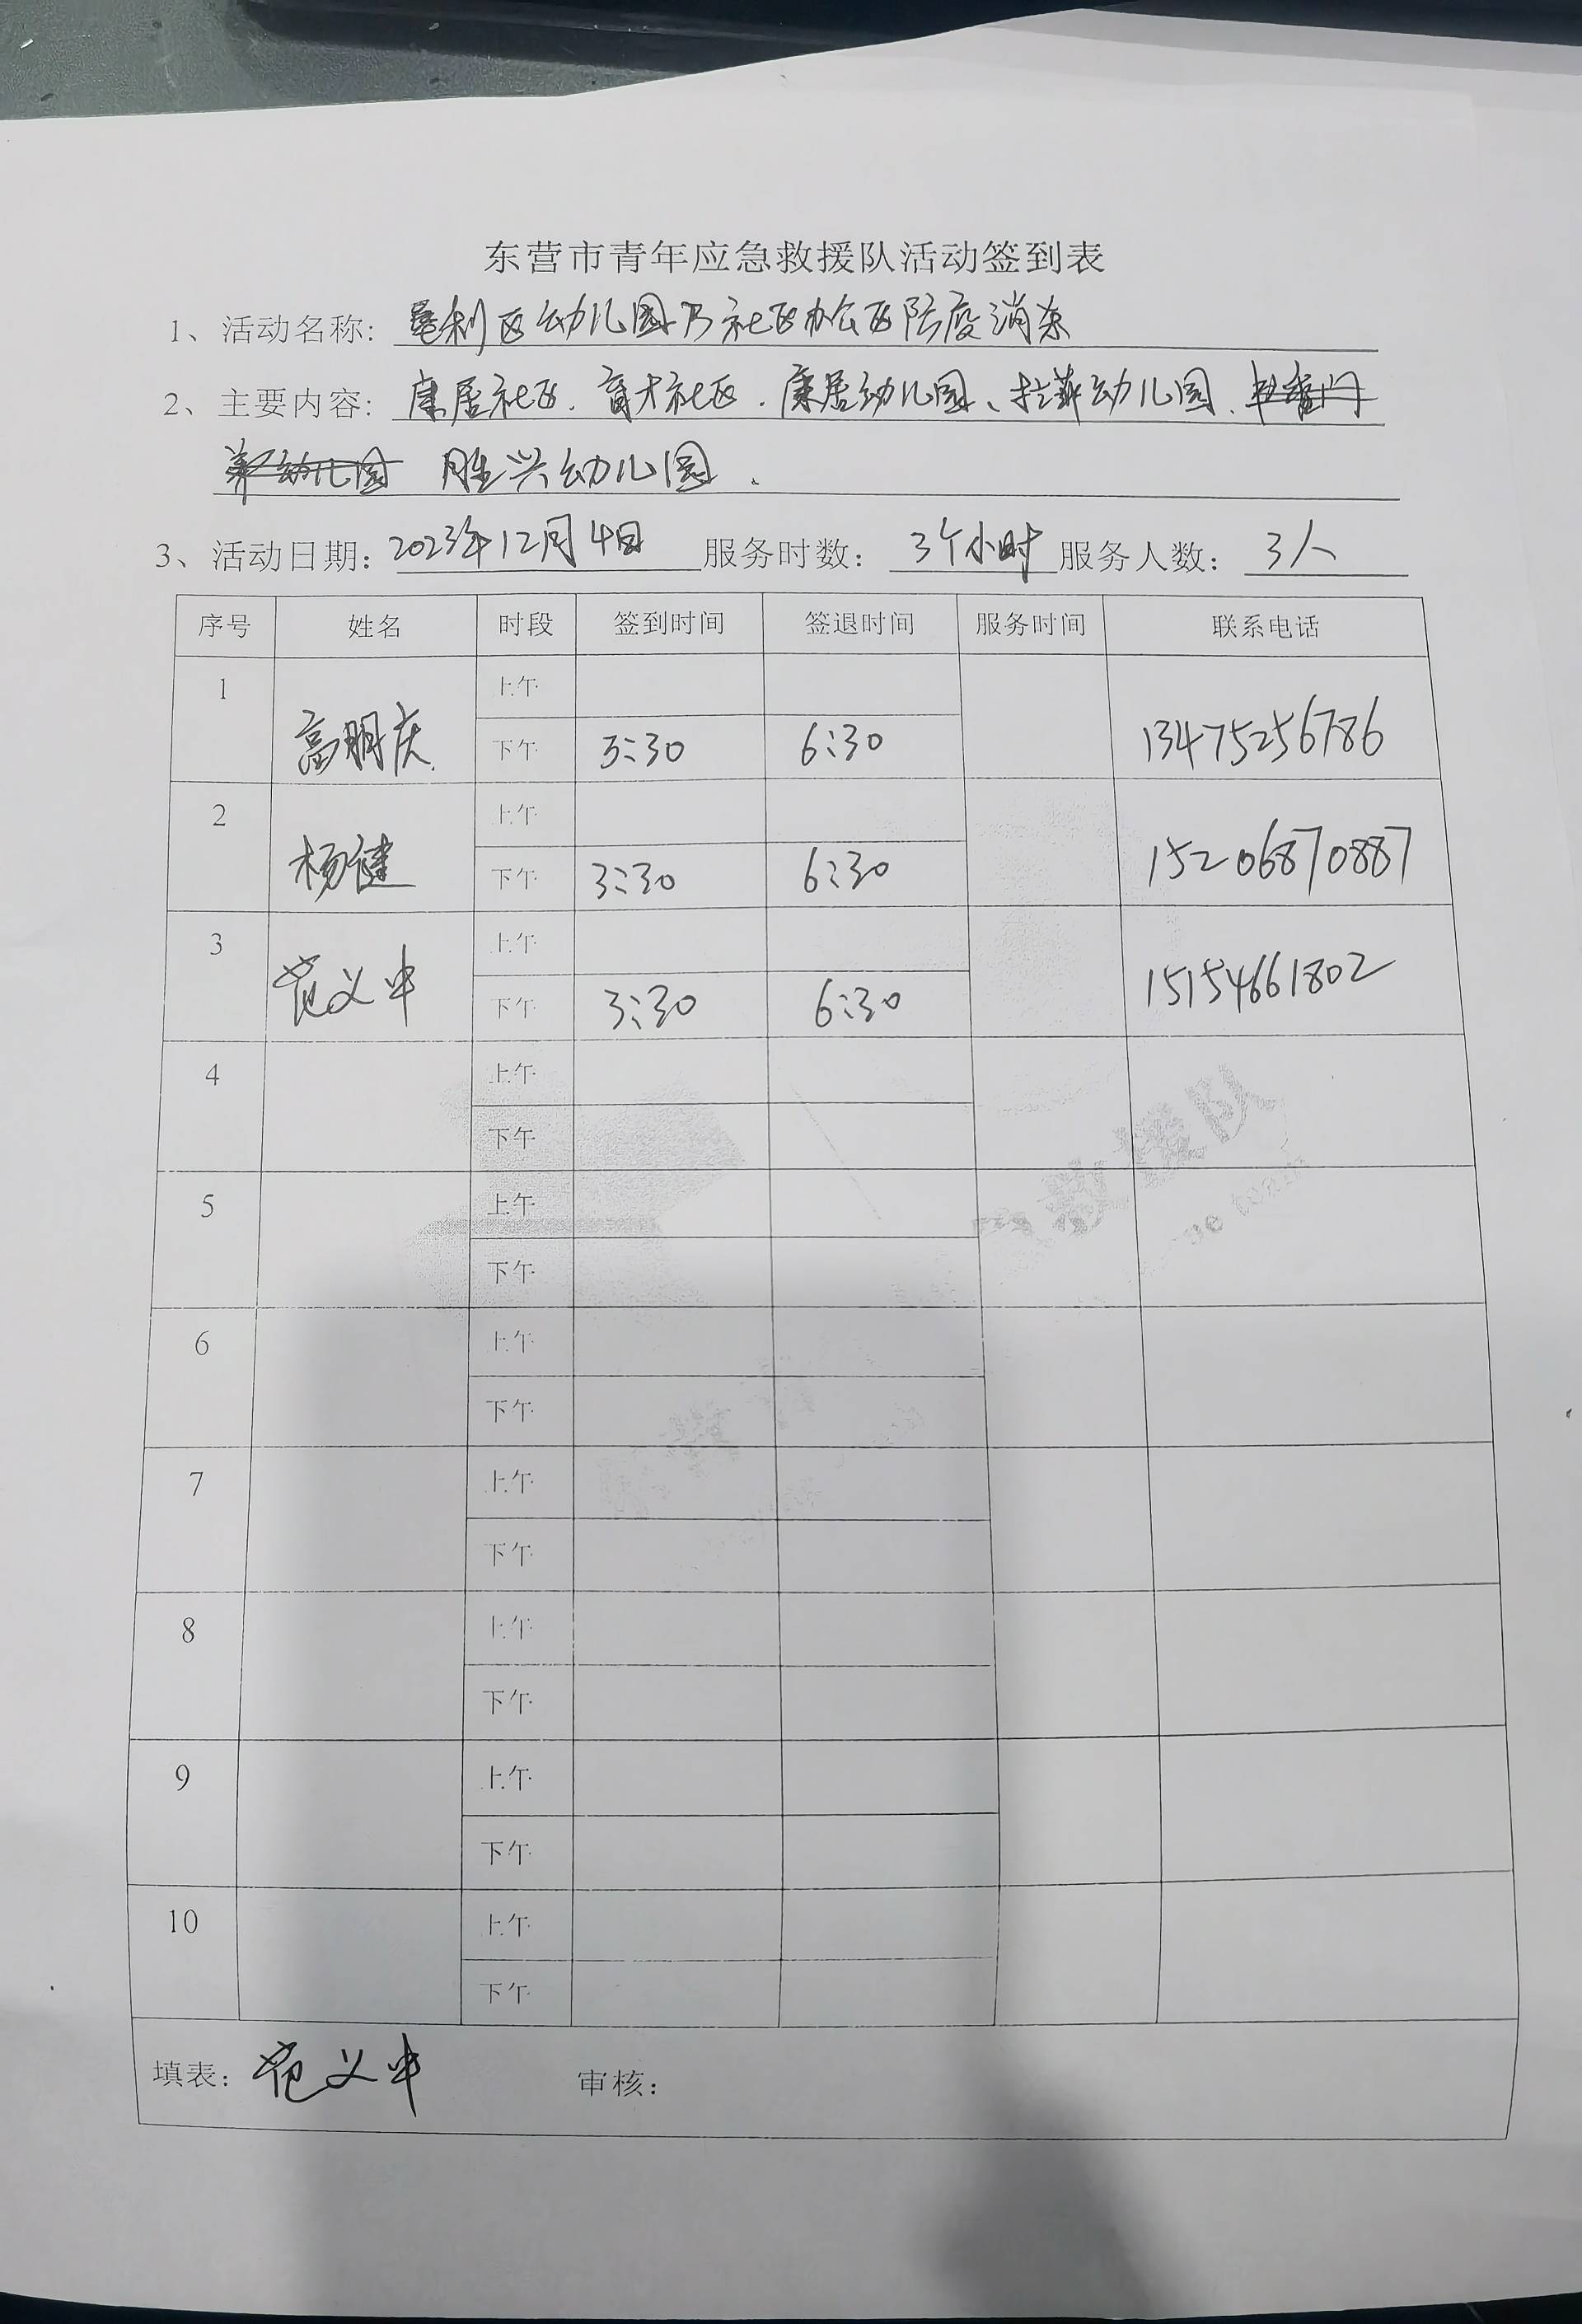 东营市青年应急救援队活动签到表
1、活动名称: 垦利区幼儿园及社区办公区防疫消杀
2、主要内容: 康居社区、育才社区、康居幼儿园、拉菲幼儿园、
胜兴幼儿园、
3、活动日期: 2023年12月4日 服务时数: 3个小时 服务人数: 3人
序号 姓名 时段 签到时间 签退时间 服务时间 联系电话
1 高明庆 上午
下午 3:30 6:30 13475256786
2 杨健 上午
下午 3:30 6:30 15206870887
3 范义中 上午
下午 3:30 6:30 15154661802
4 上午
下午
5 上午
下午
6 上午
下午
7 上午
下午
8 上午
下午
9 上午
下午
10 上午
下午
填表: 范义中 审核:
救援队